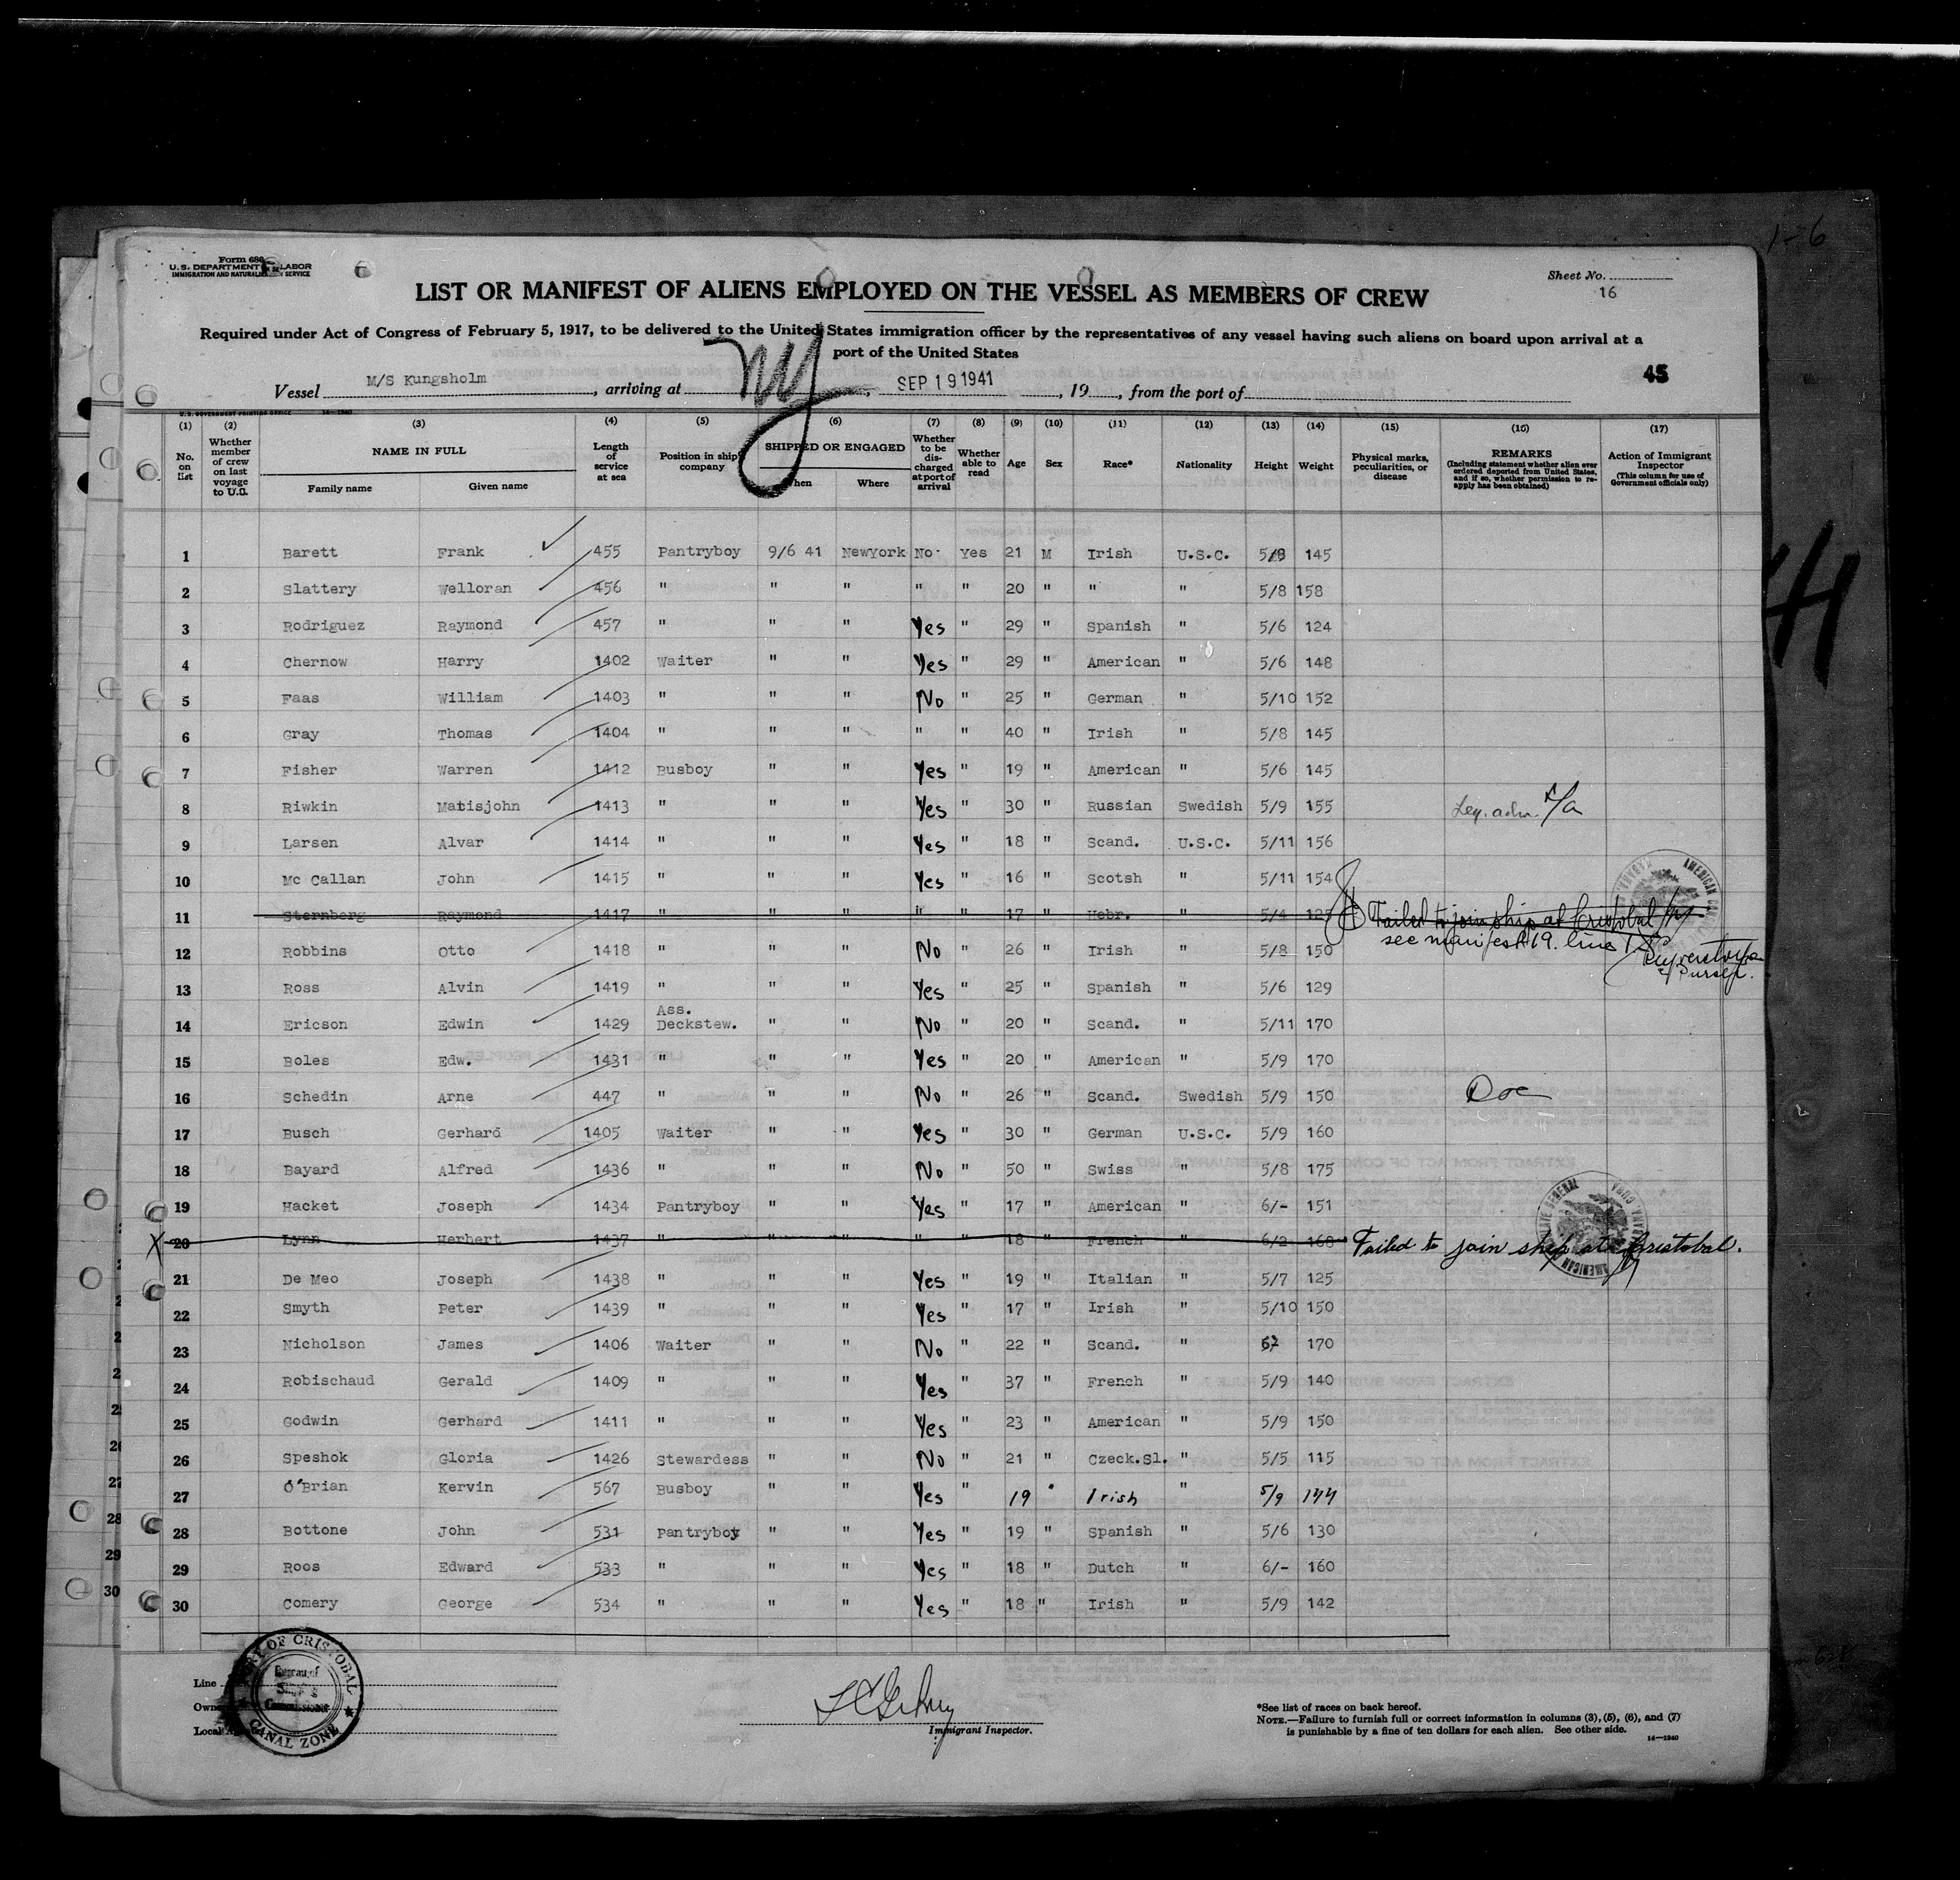 1-6
Form 680
U. S. DEPARTMENT OF LABOR
IMMIGRATION AND NATURALIZATION SERVICE
Sheet No.
16
LIST OR MANIFEST OF ALIENS EMPLOYED ON THE VESSEL AS MEMBERS OF CREW
Required under Act of Congress of February 5, 1917, to be delivered to the United States immigration officer by the representatives of any vessel having such aliens on board upon arrival at a
port of the United States
45
Vessel M/S Kungsholm, arriving at NY, SEP 19 1941, 19, from the port of
U. S. GOVERNMENT PRINTING OFFICE 14-1940
(1) (2) (3) (4) (5) (6) (7) (8) (9) (10) (11) (12) (13) (14) (15) (16) (17)
No. on list
Whether member of crew on last voyage to U.S.
NAME IN FULL
Family name Given name
Length of service at sea
Position in ship's company
SHIPPED OR ENGAGED
When Where
Whether to be discharged at port of arrival
Whether able to read
Age
Sex
Race*
Nationality
Height
Weight
Physical marks, peculiarities, or disease
REMARKS
(Including statement whether alien ever ordered deported from United States, and if so, whether permission to reapply has been obtained)
Action of Immigrant Inspector
(This column for use of Government officials only)
1 Barett Frank 455 Pantryboy 9/6 41 NewYork No Yes 21 M Irish U.S.C. 5/8 145
2 Slattery Welloran 456 " " " " " 20 " " " 5/8 158
3 Rodriguez Raymond 457 " " " Yes " 29 " Spanish " 5/6 124
4 Chernow Harry 1402 Waiter " " Yes " 29 " American " 5/6 148
5 Faas William 1403 " " " No " 25 " German " 5/10 152
6 Gray Thomas 1404 " " " " " 40 " Irish " 5/8 145
7 Fisher Warren 1412 Busboy " " Yes " 19 " American " 5/6 145
8 Riwkin Matisjohn 1413 " " " Yes " 30 " Russian Swedish 5/9 155
9 Larsen Alvar 1414 " " " Yes " 18 " Scand. U.S.C. 5/11 156
10 Mc Callan John 1415 " " " Yes " 16 " Scotsh " 5/11 154
11 Sternberg Raymond 1417 " " " " " 17 " Hebr. " 5/4 125 Failed to join ship at Cristobal
see manifest 19. line
Purser.
12 Robbins Otto 1418 " " " No " 26 " Irish " 5/8 150
13 Ross Alvin 1419 " " " Yes " 25 " Spanish " 5/6 129
14 Ericson Edwin 1429 Ass. Deckstew. " " No " 20 " Scand. " 5/11 170
15 Boles Edw. 1431 " " " Yes " 20 " American " 5/9 170
16 Schedin Arne 447 " " " No " 26 " Scand. Swedish 5/9 150
17 Busch Gerhard 1405 Waiter " " Yes " 30 " German U.S.C. 5/9 160
18 Bayard Alfred 1436 " " " No " 50 " Swiss " 5/8 175
19 Hacket Joseph 1434 Pantryboy " " Yes " 17 " American " 6/- 151
X 20 Lynn Herbert 1437 " " " " " 18 " French " 6/2 168 Failed to join ship at Cristobal.
21 De Meo Joseph 1438 " " " Yes " 19 " Italian " 5/7 125
22 Smyth Peter 1439 " " " Yes " 17 " Irish " 5/10 150
23 Nicholson James 1406 Waiter " " No " 22 " Scand. " 170
24 Robischaud Gerald 1409 " " " Yes " 37 " French " 5/9 140
25 Godwin Gerhard 1411 " " " Yes " 23 " American " 5/9 150
26 Speshok Gloria 1426 Stewardess " " No " 21 " Czeck.Sl. " 5/5 115
27 O'Brian Kervin 567 Busboy " " Yes " 19 " Irish " 5/9 144
28 Bottone John 531 Pantryboy " " Yes " 19 " Spanish " 5/6 130
29 Roos Edward 533 " " " Yes " 18 " Dutch " 6/- 160
30 Comery George 534 " " " Yes " 18 " Irish " 5/9 142
Line
Owner
Local Agent
PORT OF CRISTOBAL
CANAL ZONE
Immigrant Inspector.
*See list of races on back hereof.
NOTE.—Failure to furnish full or correct information in columns (3), (5), (6), and (7)
is punishable by a fine of ten dollars for each alien. See other side.
14-1940